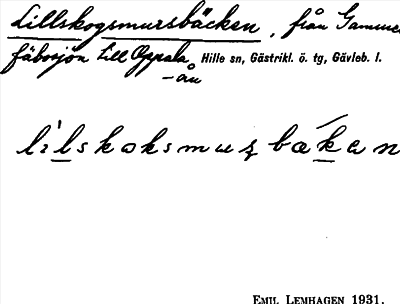 Lillskogsmursbäcken, från Gammel
fäbosjön Lill Oppala Hille sn, Gästrikl. ö. tg, Gävleb. l.
-ån
lilskoksmuʂbækan
EMIL LEMHAGEN 1931.